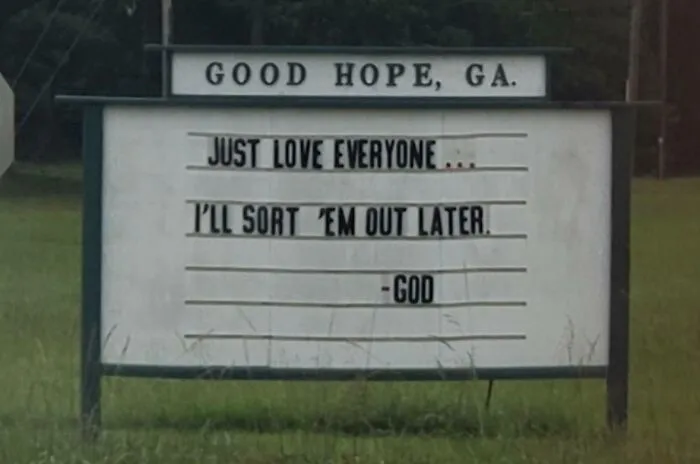 GOOD HOPE, GA.
JUST LOVE EVERYONE ...
I'LL SORT 'EM OUT LATER.
-GOD